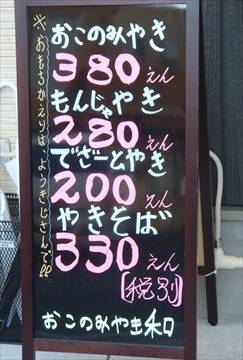 おこのみやき
380えん
もんじゃやき
280えん
でざーとやき
200えん
やきそば
330えん
[税別]
おこのみやき和
※おもちかえりは、ようきじさんで!!